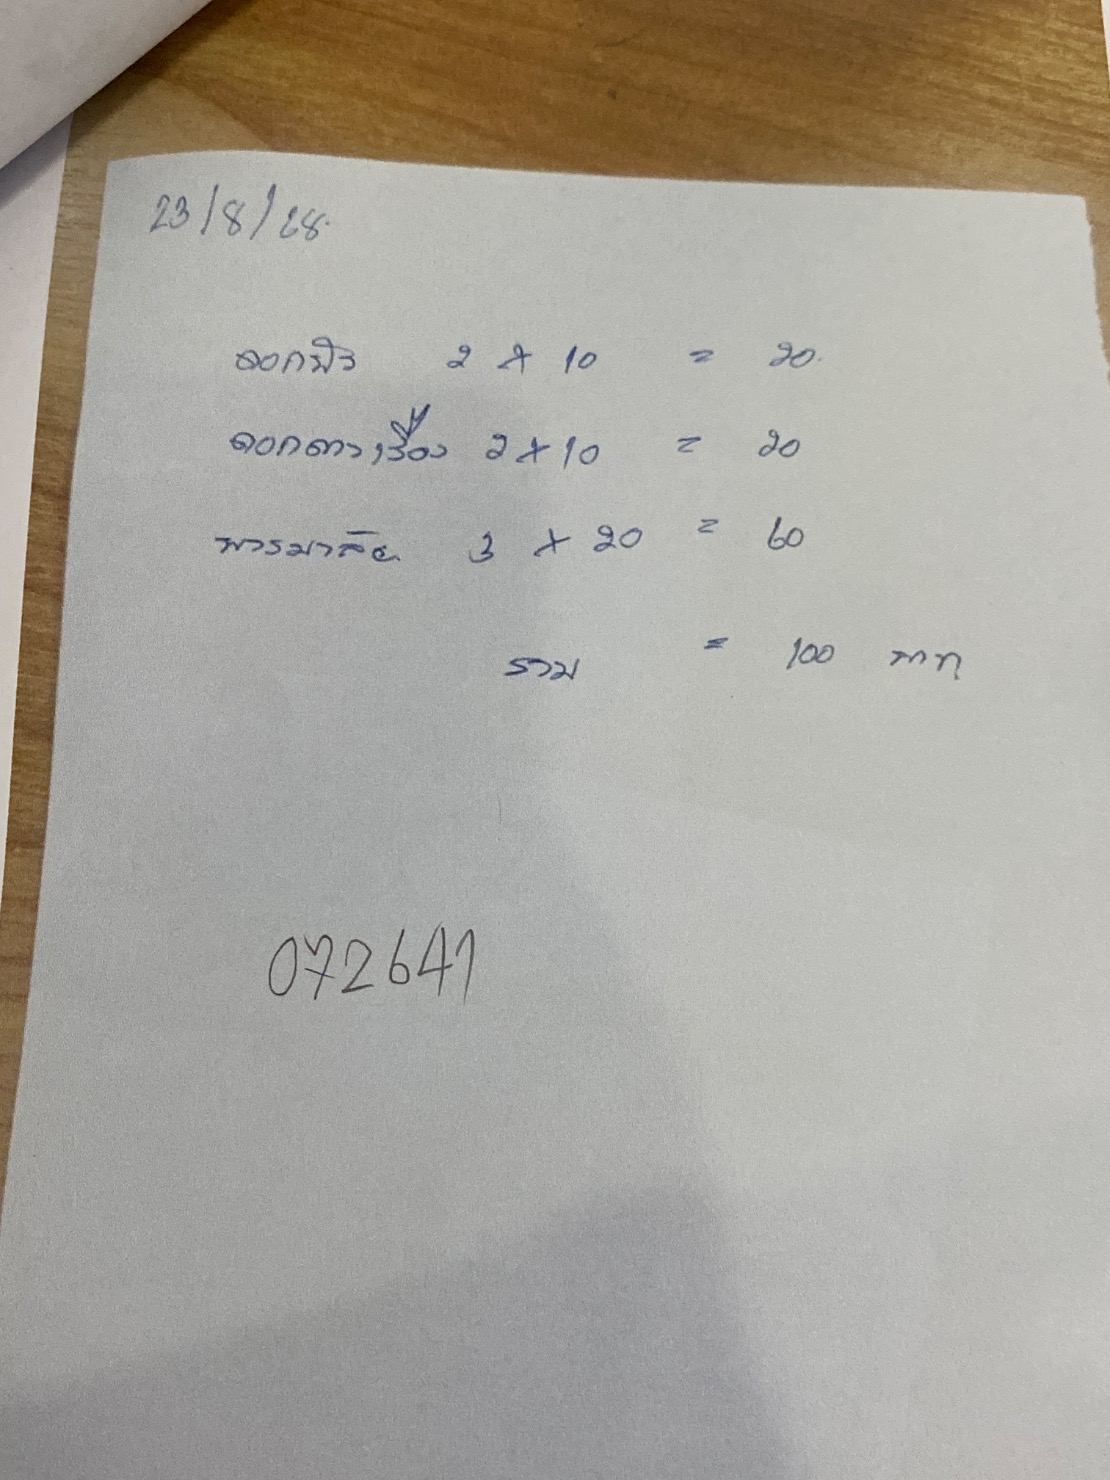 23/8/68
ดอกบัว 2 x 10 = 20
ดอกดาวเรือง 2 x 10 = 20
พวงมาลัย 3 x 20 = 60
รวม = 100 บาท
072641